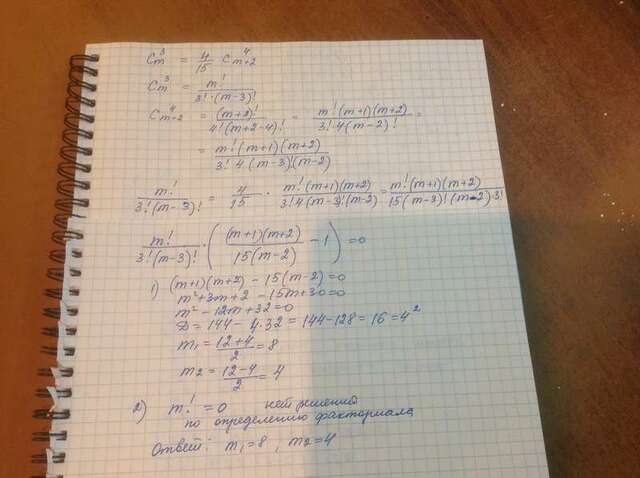 C_m^3 = 4/15 C_{m+2}^4
C_m^3 = m!/(3!·(m-3)!)
C_{m+2}^4 = (m+2)!/(4!(m+2-4)!) = m!(m+1)(m+2)/(3!·4(m-2)!) =
= m!(m+1)(m+2)/(3!·4(m-3)!(m-2))
m!/(3!(m-3)!) = 4/15 · m!(m+1)(m+2)/(3!4(m-3)!(m-2)) = m!(m+1)(m+2)/(15(m-3)!(m-2)·3!)
m!/(3!(m-3)!) · ((m+1)(m+2)/(15(m-2)) - 1) = 0
1) (m+1)(m+2) - 15(m-2) = 0
m²+3m+2 - 15m+30=0
m² - 12m + 32 = 0
D = 144 - 4·32 = 144-128 = 16 = 4²
m₁ = (12+4)/2 = 8
m₂ = (12-4)/2 = 4
2) m! = 0 нет решений
по определению факториала
Ответ: m₁=8, m₂=4